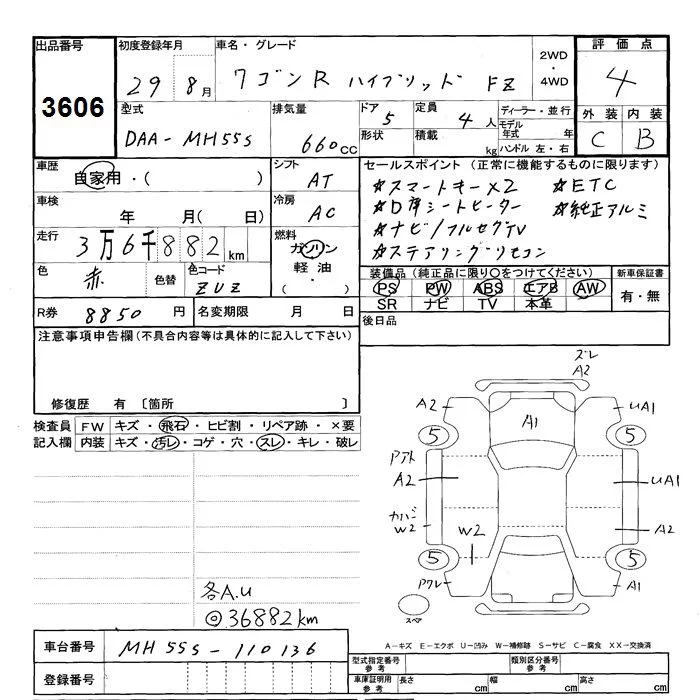 出品番号 初度登録年月 車名・グレード 2WD・4WD 評価点
3606 29 8月 ワゴンR ハイブリッド FZ 4
型式 排気量 ドア 定員 ディーラー・並行 外装 内装
DAA-MH55S 660cc 5 4人 モデル年式 年 C B
形状 積載 kg ハンドル 左・右
車歴 シフト セールスポイント(正常に機能するものに限ります)
自家用・( ) AT ☆スマートキー×2 ☆ETC
車検 冷房 ☆D席シートヒーター ☆純正アルミ
年 月( 日) AC ☆ナビ/フルセグTV
走行 燃料 ☆ステアリングリモコン
3万6千882km ガソリン
色 色替 色コード 軽油 装備品(純正品に限り○をつけてください) 新車保証書
赤 ZUZ ・( ) PS PW ABS エアB AW 有・無
SR ナビ TV 本革
R券 8850円 名変期限 月 日 後日品
注意事項申告欄(不具合内容等は具体的に記入して下さい)
修復歴 有 〔箇所 〕
検査員 FW キズ・飛石・ヒビ割・リペア跡・×要
記入欄 内装 キズ・汚レ・コゲ・穴・スレ・キレ・破レ
ズレ
A2
A2 A1 UA1
5 5
アト
A2 UA1
カバー
W2 W2 A2
5 5
アワレ A1
スペア
各A.U
◎36882km
A-キズ E-エクボ U-凹み W-補修跡 S-サビ C-腐食 XX-交換済
車台番号 MH55S-110136
型式指定番号 参考 類別区分番号 参考
登録番号 車庫証明用 参考 長さ cm 幅 cm 高さ cm